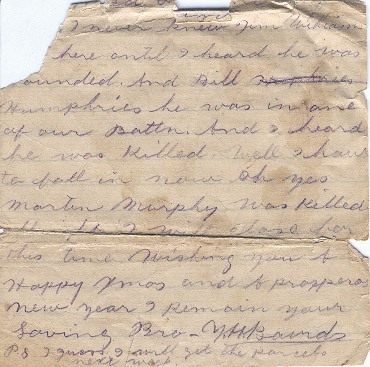 I never knew Jim William
here until I heard he was
ounded. And Bill
Humphries he was in one
of our Battn. And I heard
he was Killed. Well I have
to fall in now Oh yes
Martin Murphy was Killed
I will close for
this time Wishing you A
Happy Xmas and A propperos
New year I Remain your
Loving Bro- Bairds
P.S I guess I will get the parcels
next week